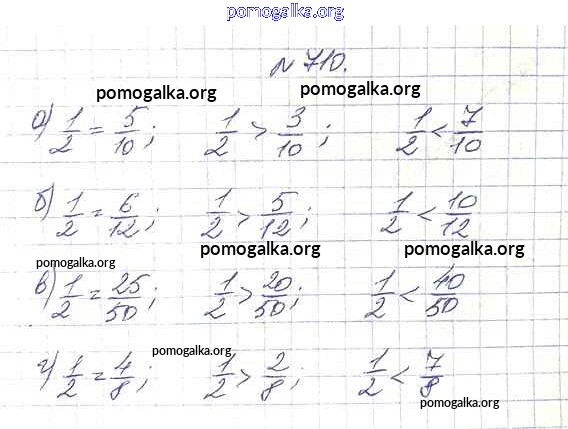 pomogalka.org
№ 710.
pomogalka.org pomogalka.org
а) 1/2 = 5/10; 1/2 > 3/10; 1/2 < 7/10
б) 1/2 = 6/12; 1/2 > 5/12; 1/2 < 10/12
pomogalka.org pomogalka.org pomogalka.org
в) 1/2 = 25/50; 1/2 > 20/50; 1/2 < 40/50
pomogalka.org
г) 1/2 = 4/8; 1/2 > 2/8; 1/2 < 7/8
pomogalka.org